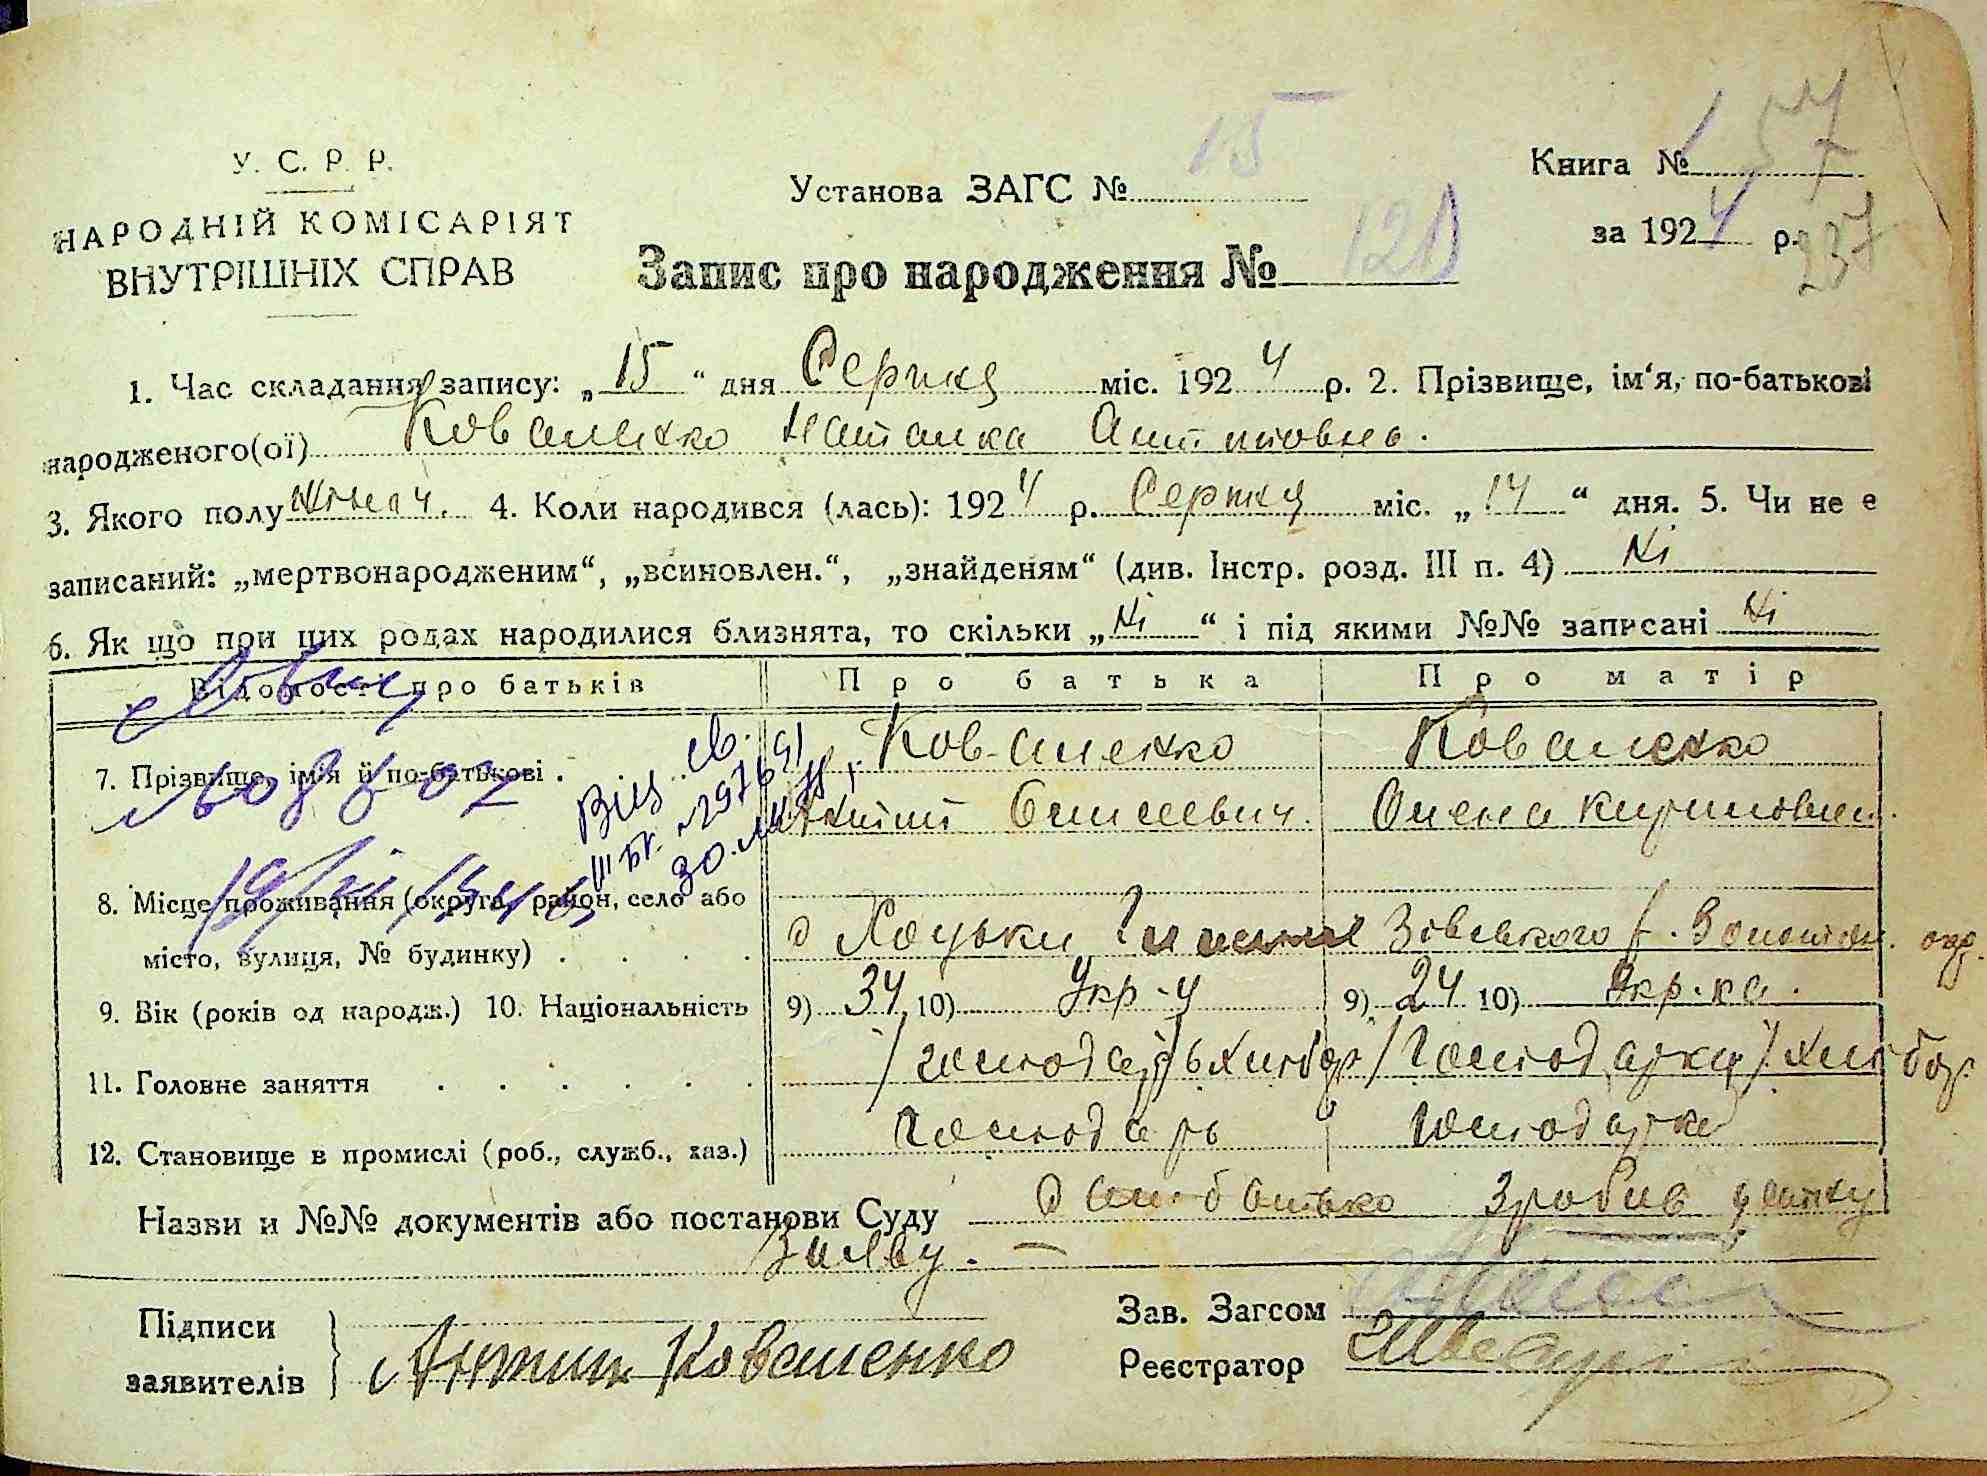 У. С. Р. Р.
НАРОДНІЙ КОМІСАРІЯТ
ВНУТРІШНІХ СПРАВ
Установа ЗАГС № 15
Книга № 1 57
за 1924 р. 237
Запис про народження № 120
1. Час складання запису: „15“ дня Серпня міс. 1924 р. 2. Прізвище, ім‘я, по-батькові
народженого(ої) Коваленко Наталка Антиповна.
3. Якого полу жіноч. 4. Коли народився (лась): 1924 р. Серпня міс. „14“ дня. 5. Чи не є
записаний: „мертвонародженим“, „всиновлен.“, „знайденям“ (див. Інстр. розд. III п. 4) Ні
6. Як що при цих родах народилися близнята, то скільки „Ні“ і під якими №№ записані Ні
Відомості про батьків Про батька Про матір
7. Прізвище, ім‘я й по-батькові . Коваленко Коваленко
Антип Олена Кириловна.
Вид. св.
III БК №
8. Місце проживання (округа, район, село або
місто, вулиця, № будинку) . . . . с Хоцьки Золотон. окр.
9. Вік (років од народж.) 10. Національність 9) 34 10) Укр-ц 9) 24 10) Укр-ка.
11. Головне заняття . . . . . . /господарь хлібор/ /Господарка/ хлібор
12. Становище в промислі (роб., служб., хаз.) Господарь Господарка
Назви и №№ документів або постанови Суду батько Зробив
Заяву. —
Підписи
заявителів
Антип Коваленко
Зав. Загсом
Реєстратор